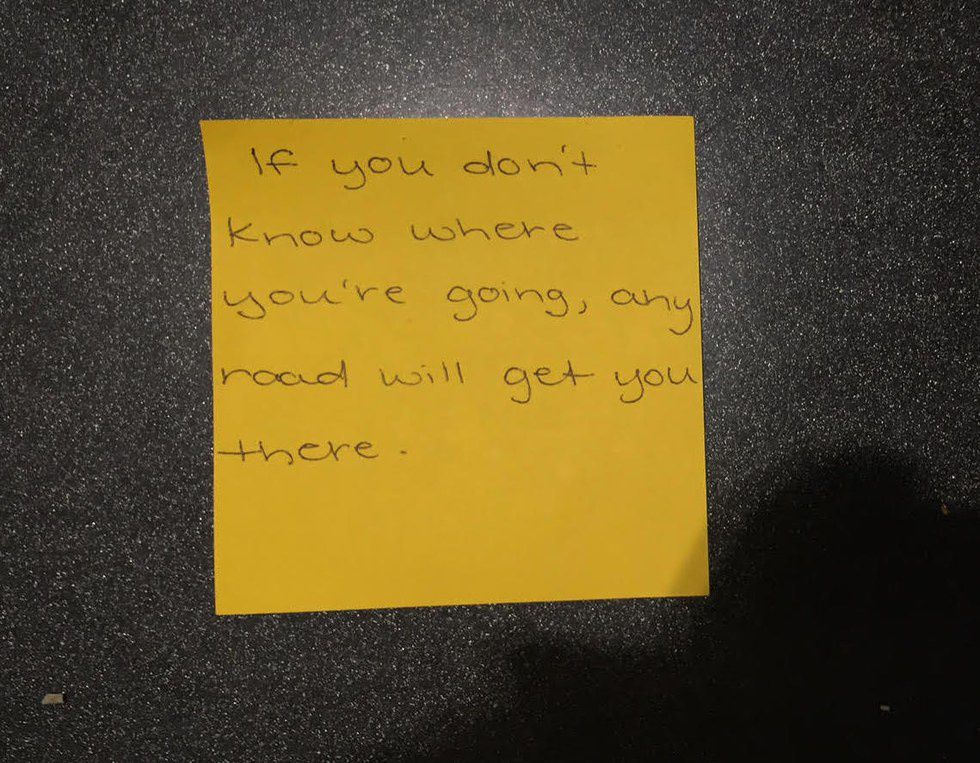 If you don't
know where
you're going, any
road will get you
there.